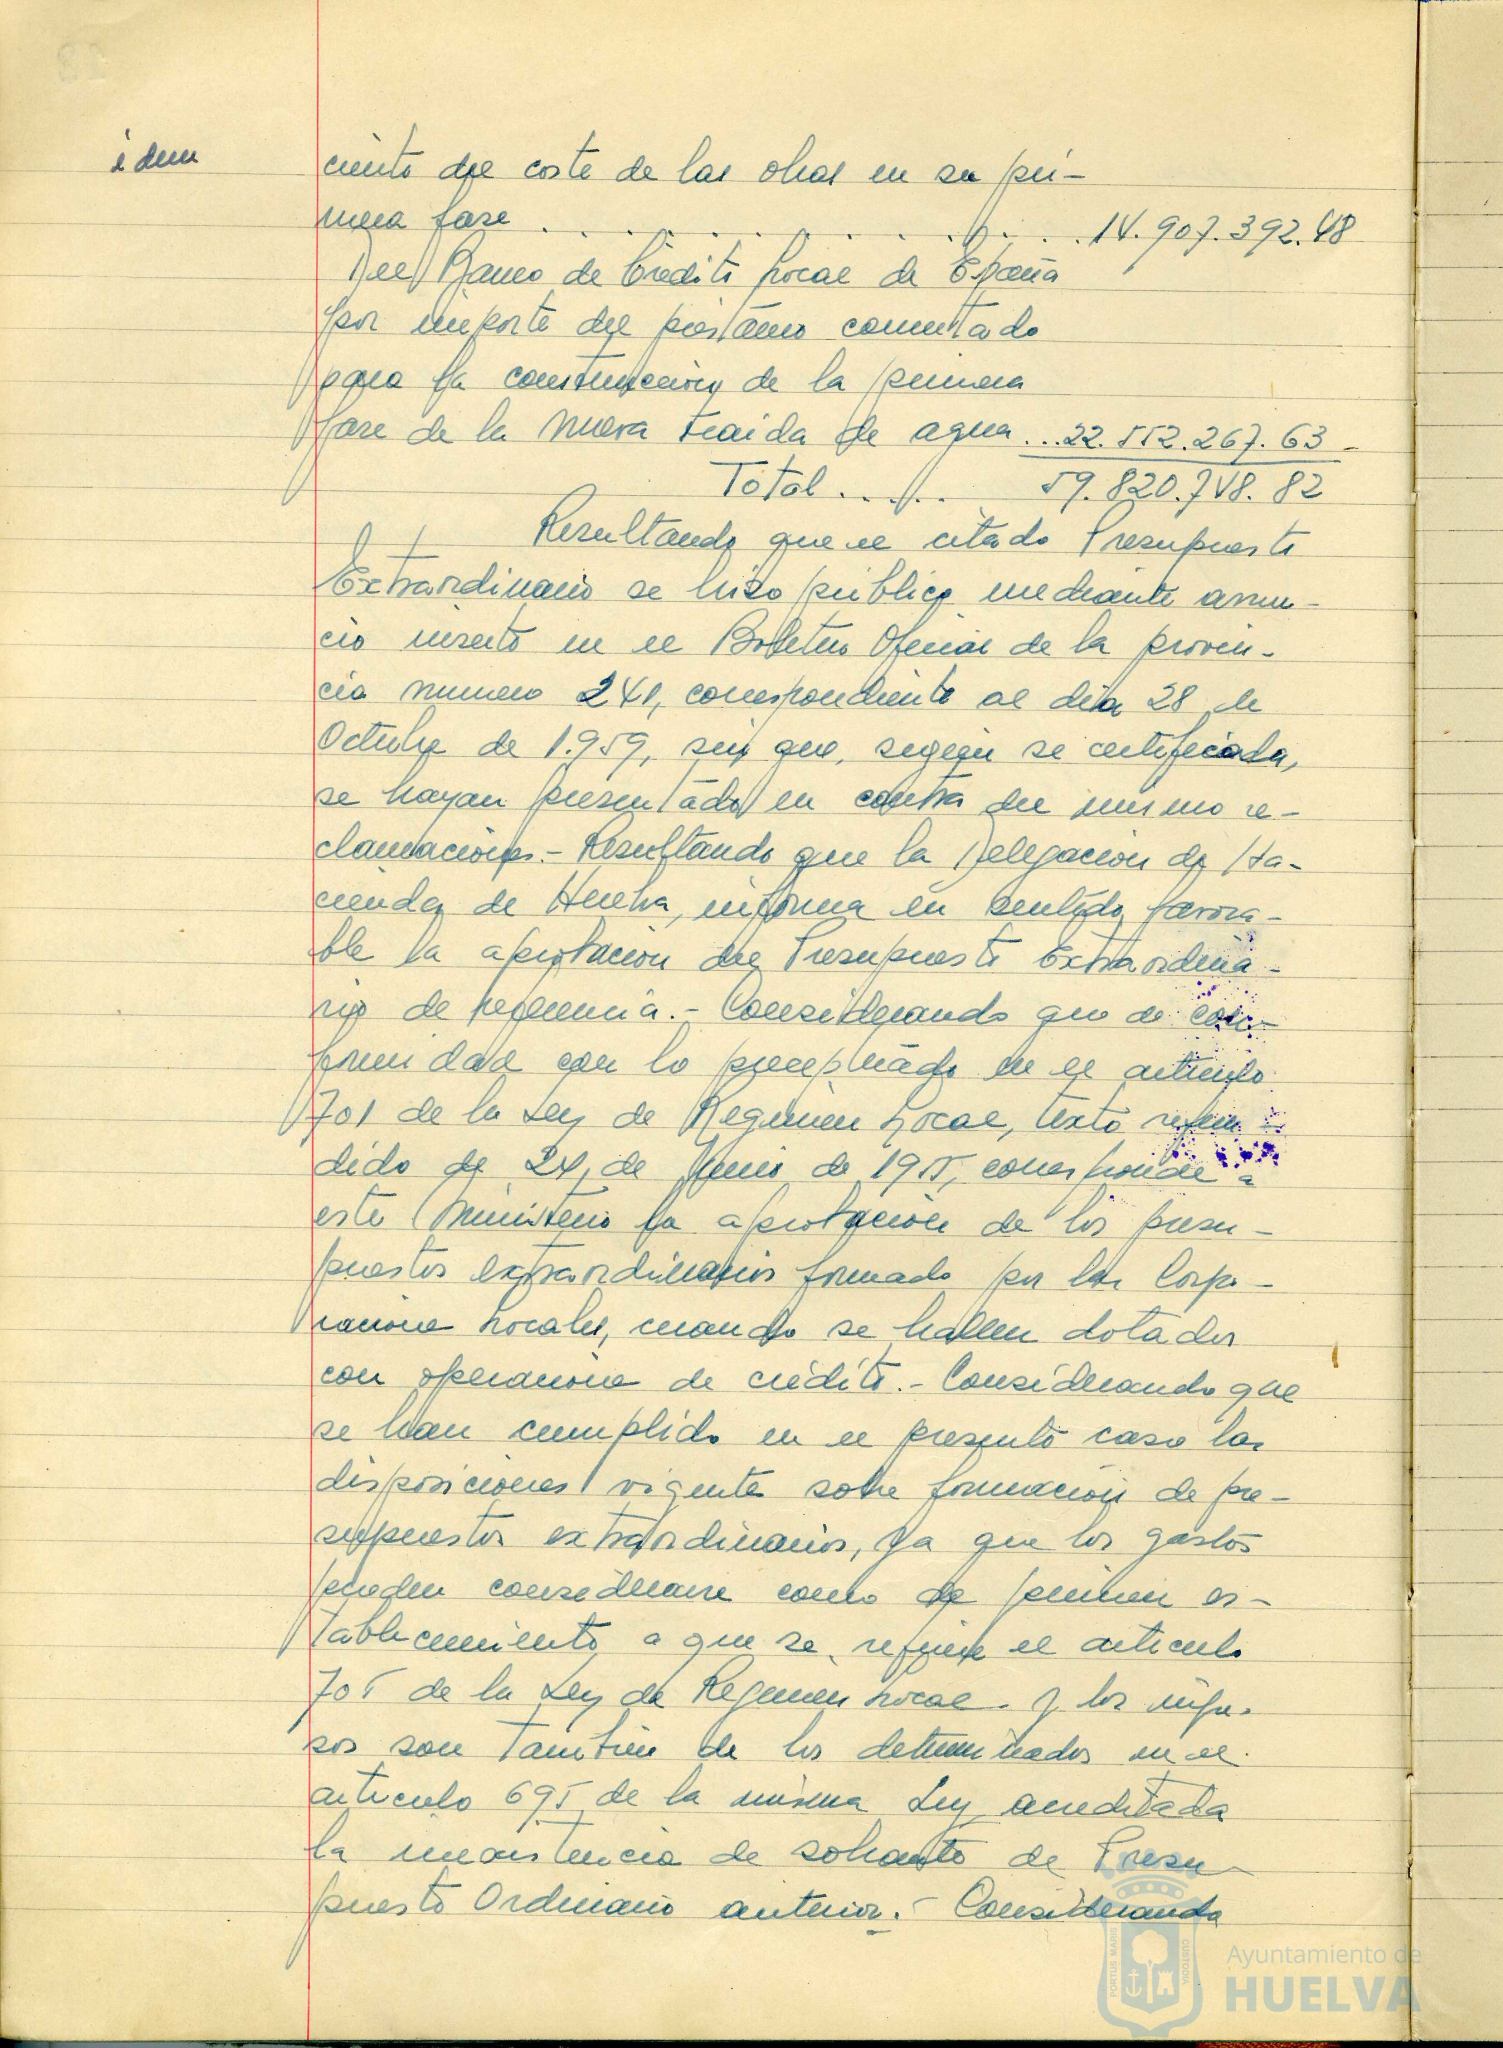 idem
ciento del coste de las obras en su pri-
mera fase . . . . . . . . . . . . . . 14.907.392.48
Del Banco de Crédito Local de España
por importe del préstamo concertado
para la construcción de la primera
fase de la nueva traida de agua ... 22.552.267.63
Total . . . . . 59.820.748.82
Resultando que el citado Presupuesto
Extraordinario se hizo público mediante anun-
cio inserto en el Boletin Oficial de la provin-
cia numero 241, correspondiente al dia 28 de
Octubre de 1.959, sin que, segun se certificada,
se hayan presentado en contra del mismo re-
clamaciones.- Resultando que la Delegacion de Ha-
cienda de Huelva, informa en sentido favora-
ble la aprobacion del Presupuesto Extraordina-
rio de referencia.- Considerando que de con-
formidad con lo preceptuado en el articulo
701 de la Ley de Regimen Local, texto refun-
dido de 24, de Junio de 1955, corresponde a
este Ministerio la aprobacion de los presu-
puestos extraordinarios formado por las Corpo-
raciones Locales, cuando se hallen dotados
con operaciones de crédito.- Considerando que
se han cumplido en el presente caso las
disposiciones vigentes sobre formacion de pre-
supuestos extraordinarios, ya que los gastos
pueden considerarse como de primer es-
tablecimiento a que se refiere el articulo
705 de la Ley de Regimen Local y los ingre-
sos son tambien de los determinados en el
articulo 695 de la misma Ley, acreditada
la inexistencia de sobrante de Presu-
puesto Ordinario anterior.- Considerando
PORTUS MARIS
CUSTODIA
Ayuntamiento de
HUELVA